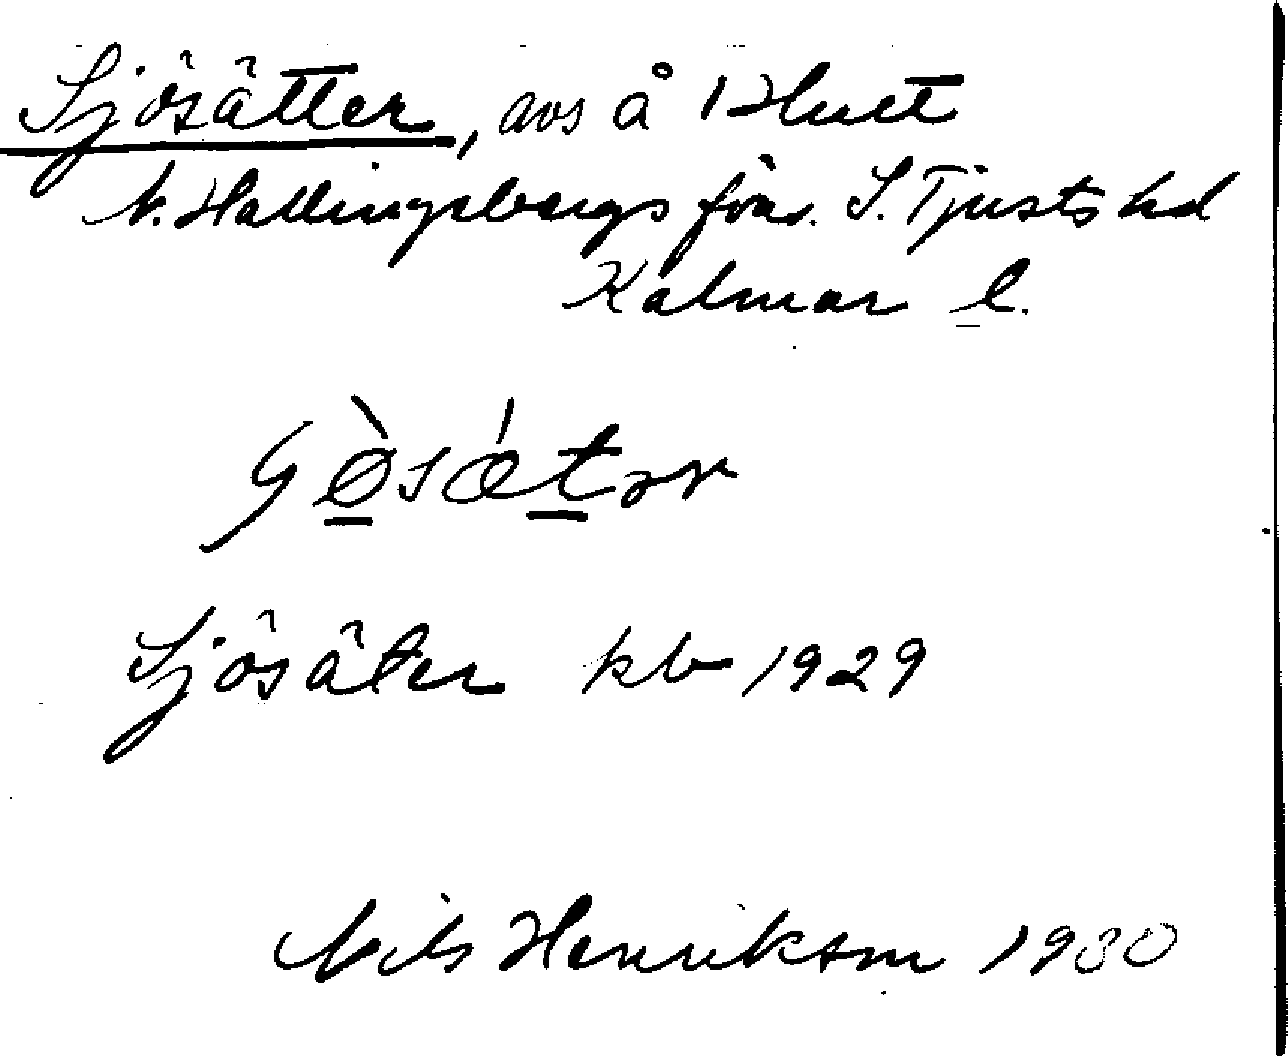 Sjösätter, avs å Hult
N. Hallingebergs förs. S. Tjusts hd
Kalmar l.
sätər
Sjösäter kb 1929
Nils Henrikson 1930